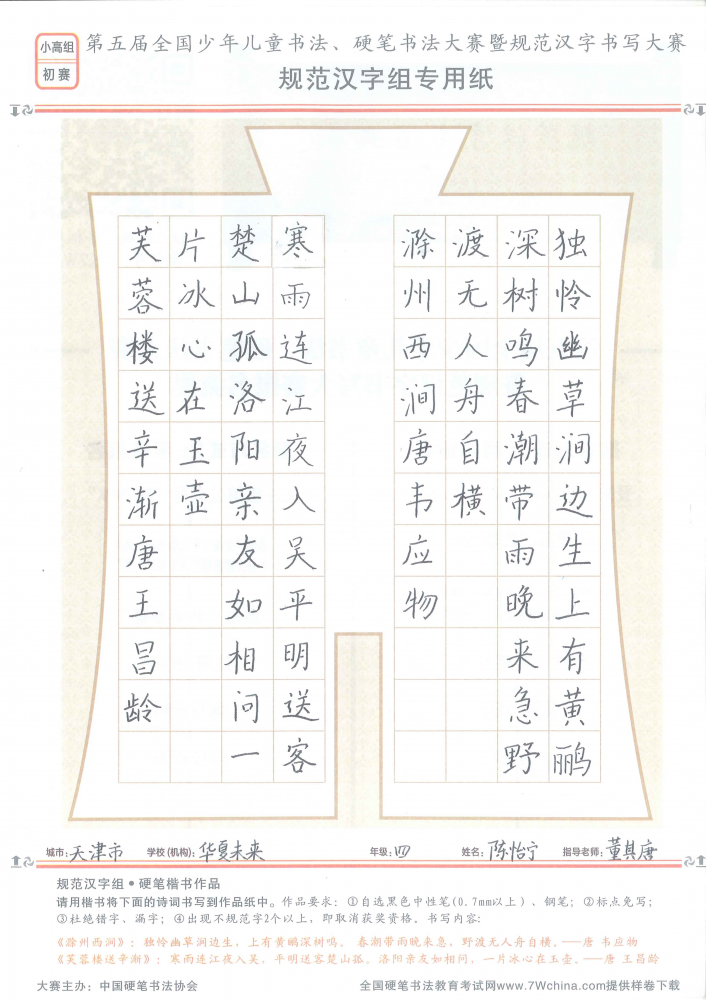 小高组
初赛
第五届全国少年儿童书法、硬笔书法大赛暨规范汉字书写大赛
规范汉字组专用纸
独怜幽草涧边生上有黄鹂
深树鸣春潮带雨晚来急野
渡无人舟自横
滁州西涧唐韦应物
寒雨连江夜入吴平明送客
楚山孤洛阳亲友如相问一
片冰心在玉壶
芙蓉楼送辛渐唐王昌龄
城市:天津市 学校(机构):华夏未来 年级:四 姓名:陈怡宁 指导老师:董其唐
规范汉字组•硬笔楷书作品
请用楷书将下面的诗词书写到作品纸中。作品要求:①自选黑色中性笔(0.7mm以上)、钢笔;②标点免写;
③杜绝错字、漏字;④出现不规范字2个以上,即取消获奖资格。书写内容:
《滁州西涧》:独怜幽草涧边生,上有黄鹂深树鸣。春潮带雨晚来急,野渡无人舟自横。——唐 韦应物
《芙蓉楼送辛渐》:寒雨连江夜入吴,平明送客楚山孤。洛阳亲友如相问,一片冰心在玉壶。——唐 王昌龄
大赛主办:中国硬笔书法协会
全国硬笔书法教育考试网www.7Wchina.com提供样卷下载